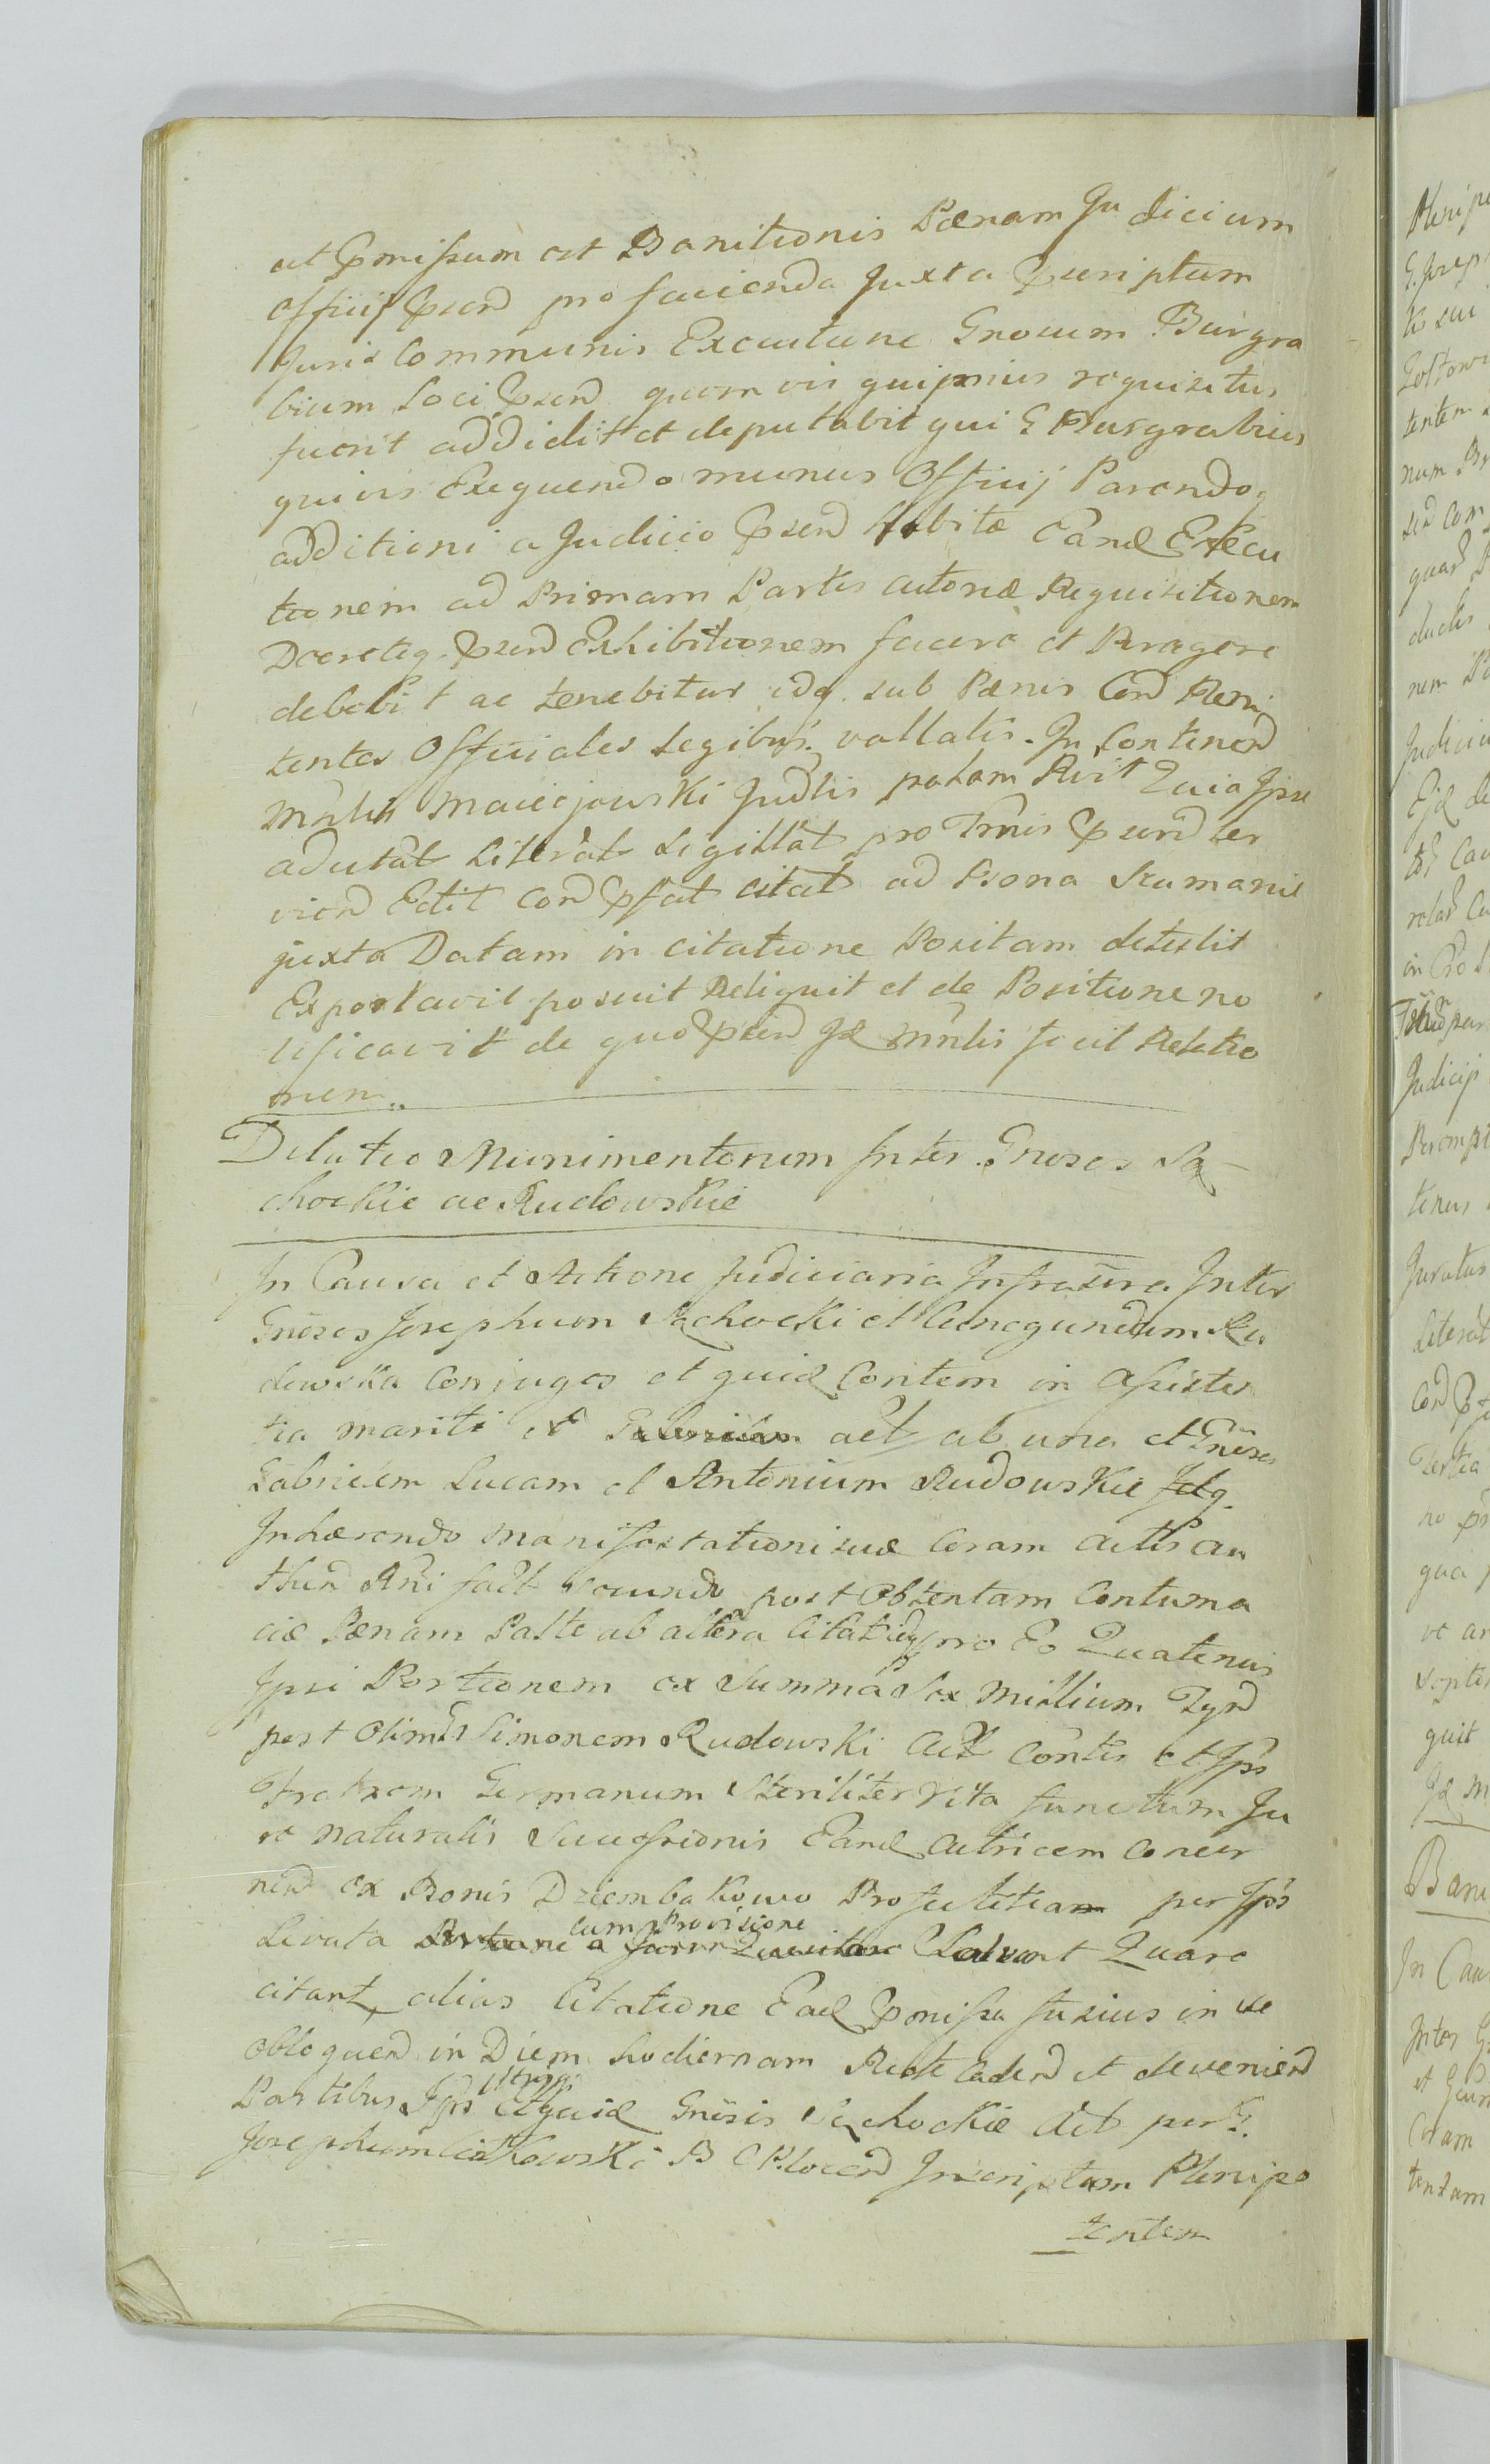 ut ꝑmissum est Banitionis Pænam Judicium
Officij ꝑsend pro facienda Juxta ꝑscriptum
Juris Communis Executione Gnosum Burgra
bium Loci ꝑsend quemvis qui prius requisitus
fuerit addidit et deputabit qui G Burgrabius
quivis Exequendo munus Officij Parendoq
additioni a Judicio ꝑsend habitæ Eand Execu
tionem ad Primam Partis Actoræ Requisitionem
Decretiq ꝑsend Exhibitionem facere et Peragere
debebit ac tenebitur idq. sub Pænis Cond Reni
tentes Officiales Legibus vallatis. In Continend
Mnlis Maciejowski Judlis palam Rvit Quia Ipse
aduta͠t Litera͠t Sigilla͠t pro Tmis ꝑsend ter
viend Edit Cond ꝑfat citat ad Bona Kumanie
juxta Datam in citatione Positam detulit
Exportavit posuit Reliquit et de Positione no
tificavit de quo ꝑsend Jd Mnlis fecit Relatio
nem..
Dilatio Munimentorum Inter Gnosos Są-
chockie ac Rudowskie
In Causa et Actione Judiciaria Infrascra Inter
Gnosos Josephum Sąchocki et Cunegundam Ru
dowska Conjuges et quid Contem in Assisten
tia mariti Act ab una et Gnosos
Gabrielem Lucam et Antonium Rudowskie
Inhærendo Manifestationi suæ Coram Actis au
thend Rni fact secundo post Obtentam Contuma
ciæ Pænam Parte ab altera Citat pro Eo Quatenus
Ipsi Portionem ex Summa Sex Millium Tynd
post Olim G Simonem Rudowski Act Contis et Ips
Fratrem Germanum Steriliter Vita functum Ju
re naturalis Successionis Eand Actricem Concer
nend ex Bonis Dziembakowo Profectitiam per Ips
cum Provisione
Levata a Salvant Quare
citant alias Citatione Ead ꝑmissa fusius in se
obloquend in Diem hodiernam Recte Cadend et deveniend
Partibus Ips utrisq. et quid Gnosis Sąchockie Act per G.
Josephum Ciotkowski B C Plocend Inscriptum Plenipo
tentem